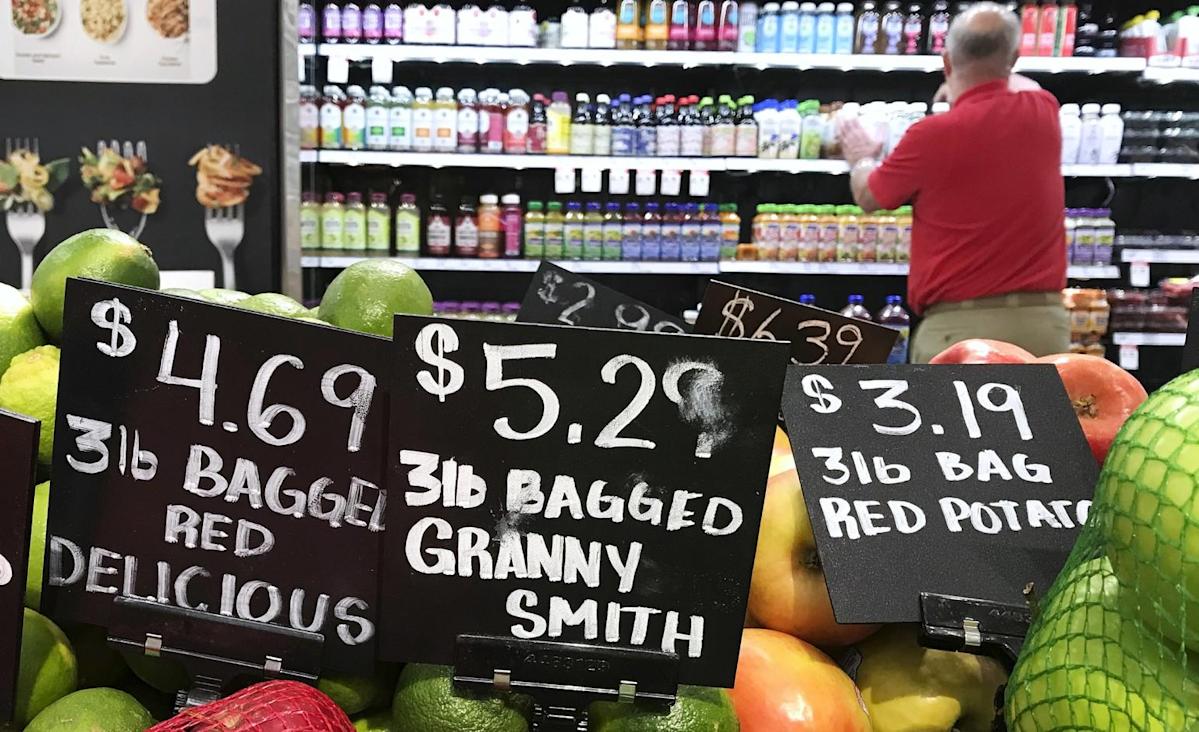 $4.69
3lb BAGGED
RED
DELICIOUS
$5.29
3lb BAGGED
GRANNY
SMITH
2.99
$6.39
$3.19
3lb BAG
RED POTATO